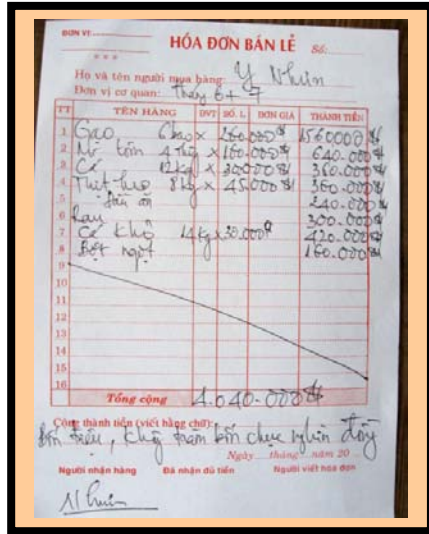 ĐƠN VỊ:
HÓA ĐƠN BÁN LẺ Số:
Họ và tên người mua hàng: Y Nhuin
Đơn vị cơ quan: Tháng 6 + 7
TT TÊN HÀNG ĐVT SỐ. L ĐƠN GIÁ THÀNH TIỀN
1 Gạo 6 bao x 260.000đ 1560000đ
2 Mì tôm 4 thg x 160.000đ 640.000đ
3 Cá 12kg x 30000đ 360.000đ
4 Thịt heo 8kg x 45.000đ 360.000đ
5 Dầu ăn 240.000đ
6 Rau 300.000đ
7 Cá khô 14kg x 30.000đ 420.000đ
8 Bột ngọt 160.000đ
9
10
11
12
13
14
15
16
Tổng cộng 4.040.000đ
Cộng thành tiền (viết bằng chữ):
Bốn triệu, không trăm bốn chục nghìn đồng
Ngày tháng năm 20
Người nhận hàng Đã nhận đủ tiền Người viết hóa đơn